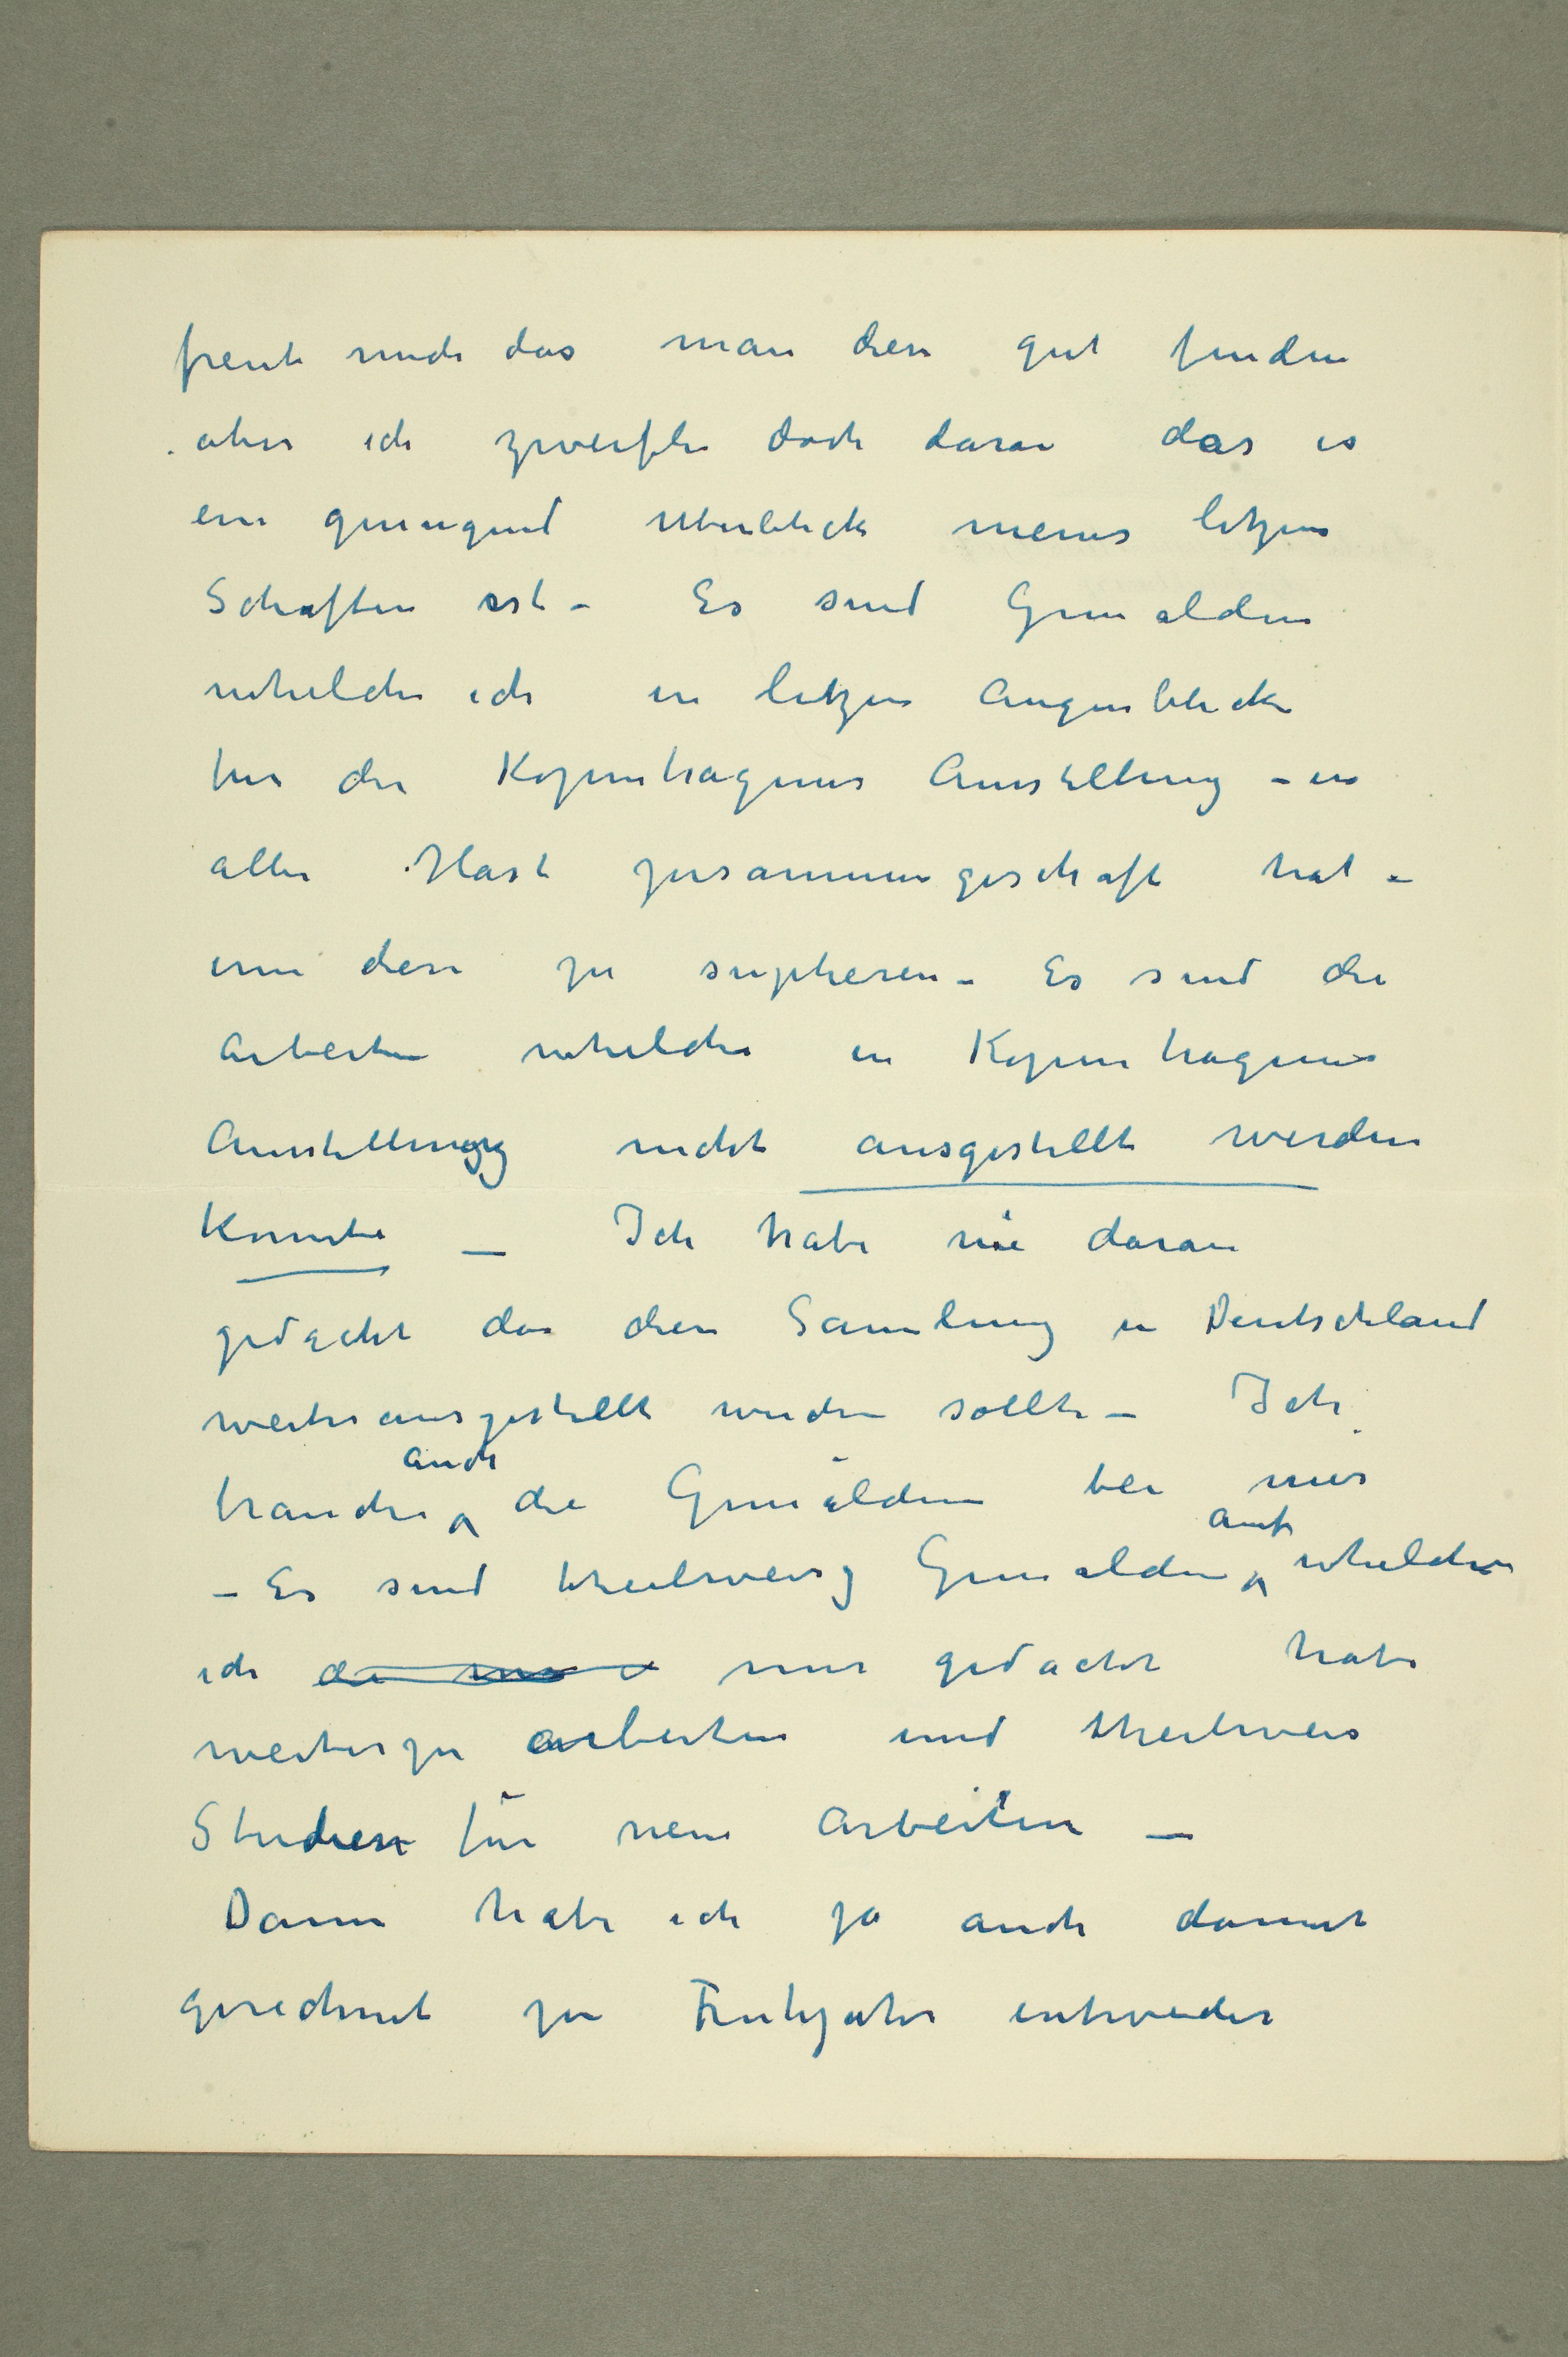 freut mich das man diese gut finden
aber ich zweifle doch daran das es
ein genugend Uberblick meines letzen
Schaffen ist – Es sind Gemälden
whelche ich in letzen Augenblick
fur die Kopenhagener Ausstellung – in
aller Hast zusammengeschaft hat –
um diese zu supleren – Es sind die
Arbeiten whelche in Kopenhagener
Ausstellung nicht ausgestellt werden
konnte – Ich habe nie daran
gedacht das diese Samlung in Deutschland
weiterausgestellt werden sollte – Ich
auch
brauche die Gemälden bei mir
auf
– Es sind theilweise Gemälden whelche
ich mir gedacht habe
weiterzu arbeiten und theilweis
Studien für neue Arbeiten –
Dann habe ich ja auch damit
gerechnet zu Fruhjahr entweder